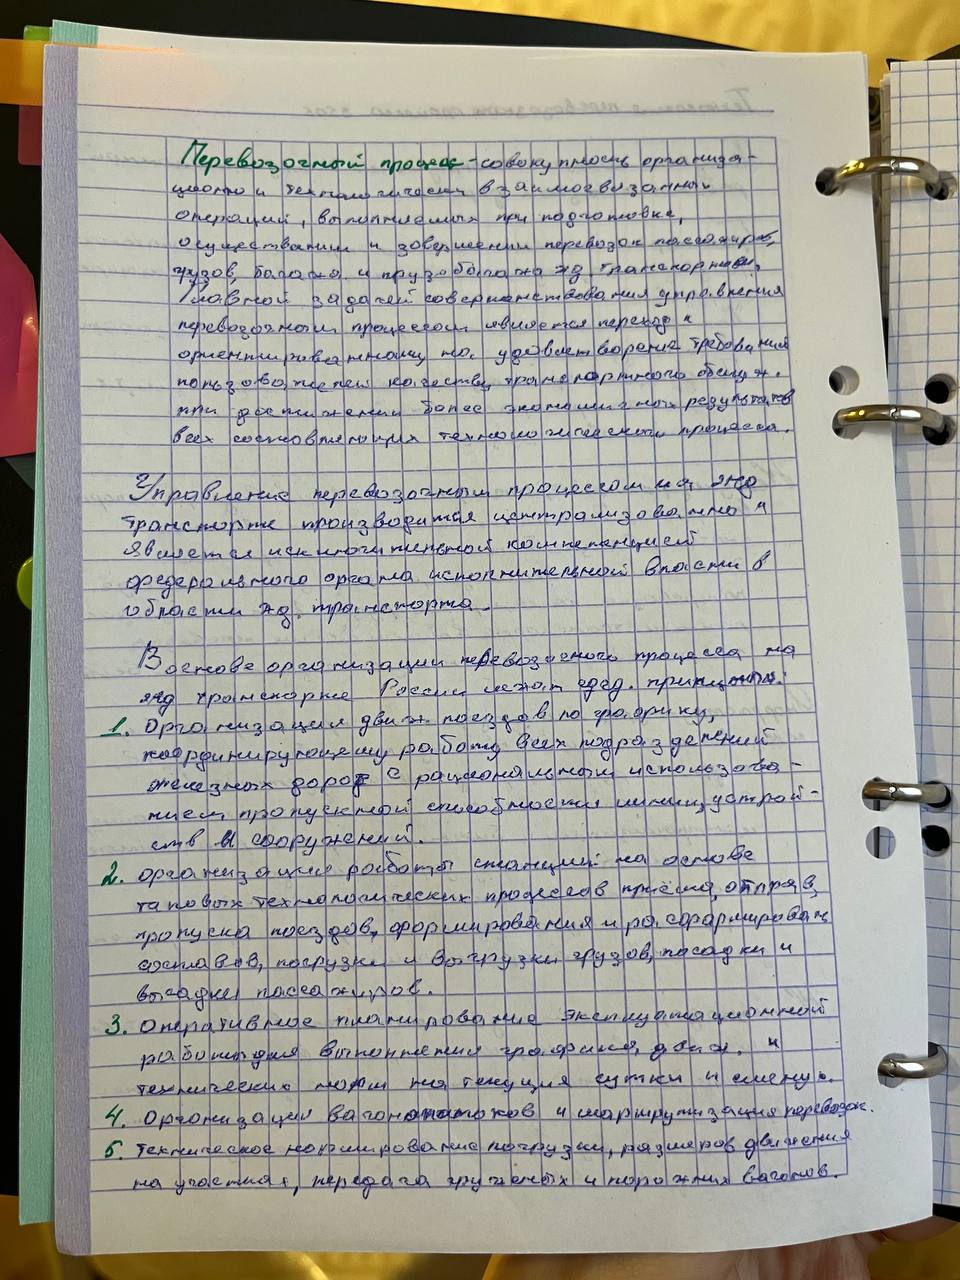 Перевозочный процесс - совокупность организа-
ционно и технологически взаимосвязанных
операций, выполняемых при подготовке,
осуществлении и завершении перевозок пассажиров,
грузов, багажа и грузобагажа жд транспортом.
Главной задачей совершенствования управления
перевозочным процессом является переход к
ориентированному на удовлетворение требования
пользователей качеству транспортного обслуж.
при достижении более экономичных результатов
всех составляющих технологического процесса.
Управление перевозочным процессом на жд
транспорте производится централизованно и
является исключительной компетенцией
федерального органа исполнительной власти в
области жд. транспорта.
В основе организации перевозочного процесса на
жд транспорте России лежат след. принципы:
1. Организация движ. поездов по графику,
координирующему работу всех подразделений
железных дорог с рациональным использова-
нием пропускной способности линий, устрой-
ств и сооружений.
2. организация работы станций на основе
типовых технологических процессов приёма, отправ,
пропуска поездов, формирования и расформирован
составов, погрузки и выгрузки грузов, посадки и
высадки пассажиров.
3. Оперативное планирование эксплуатационной
работы для выполнения графика движ. и
технических норм на текущие сутки и смену.
4. Организация вагонопотоков и маршрутизация перевозок.
5. Техническое нормирование погрузки, размеров движения
на участках, передача гружёных и порожних вагонов.